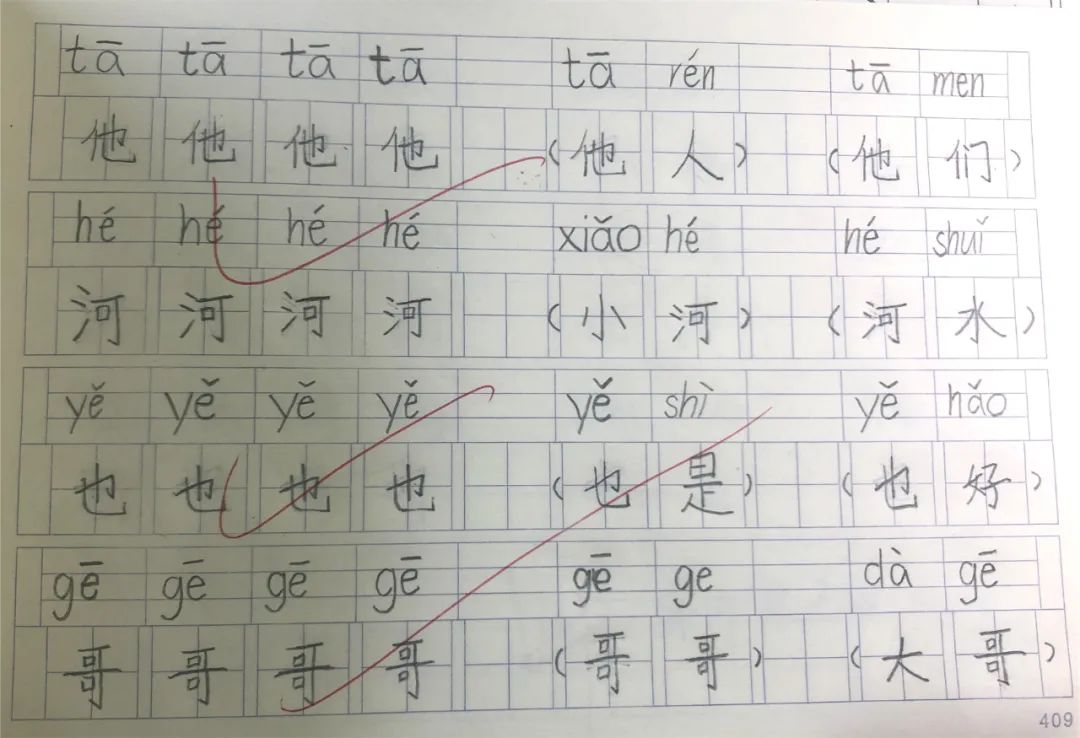 tā tā tā tā tā rén tā men
他 他 他 他 (他 人) (他 们)
hé hé hé hé xiǎo hé hé shuǐ
河 河 河 河 (小 河) (河 水)
yě yě yě yě yě shì yě hǎo
也 也 也 也 (也 是) (也 好)
gē gē gē gē gē ge dà gē
哥 哥 哥 哥 (哥 哥) (大 哥)
409